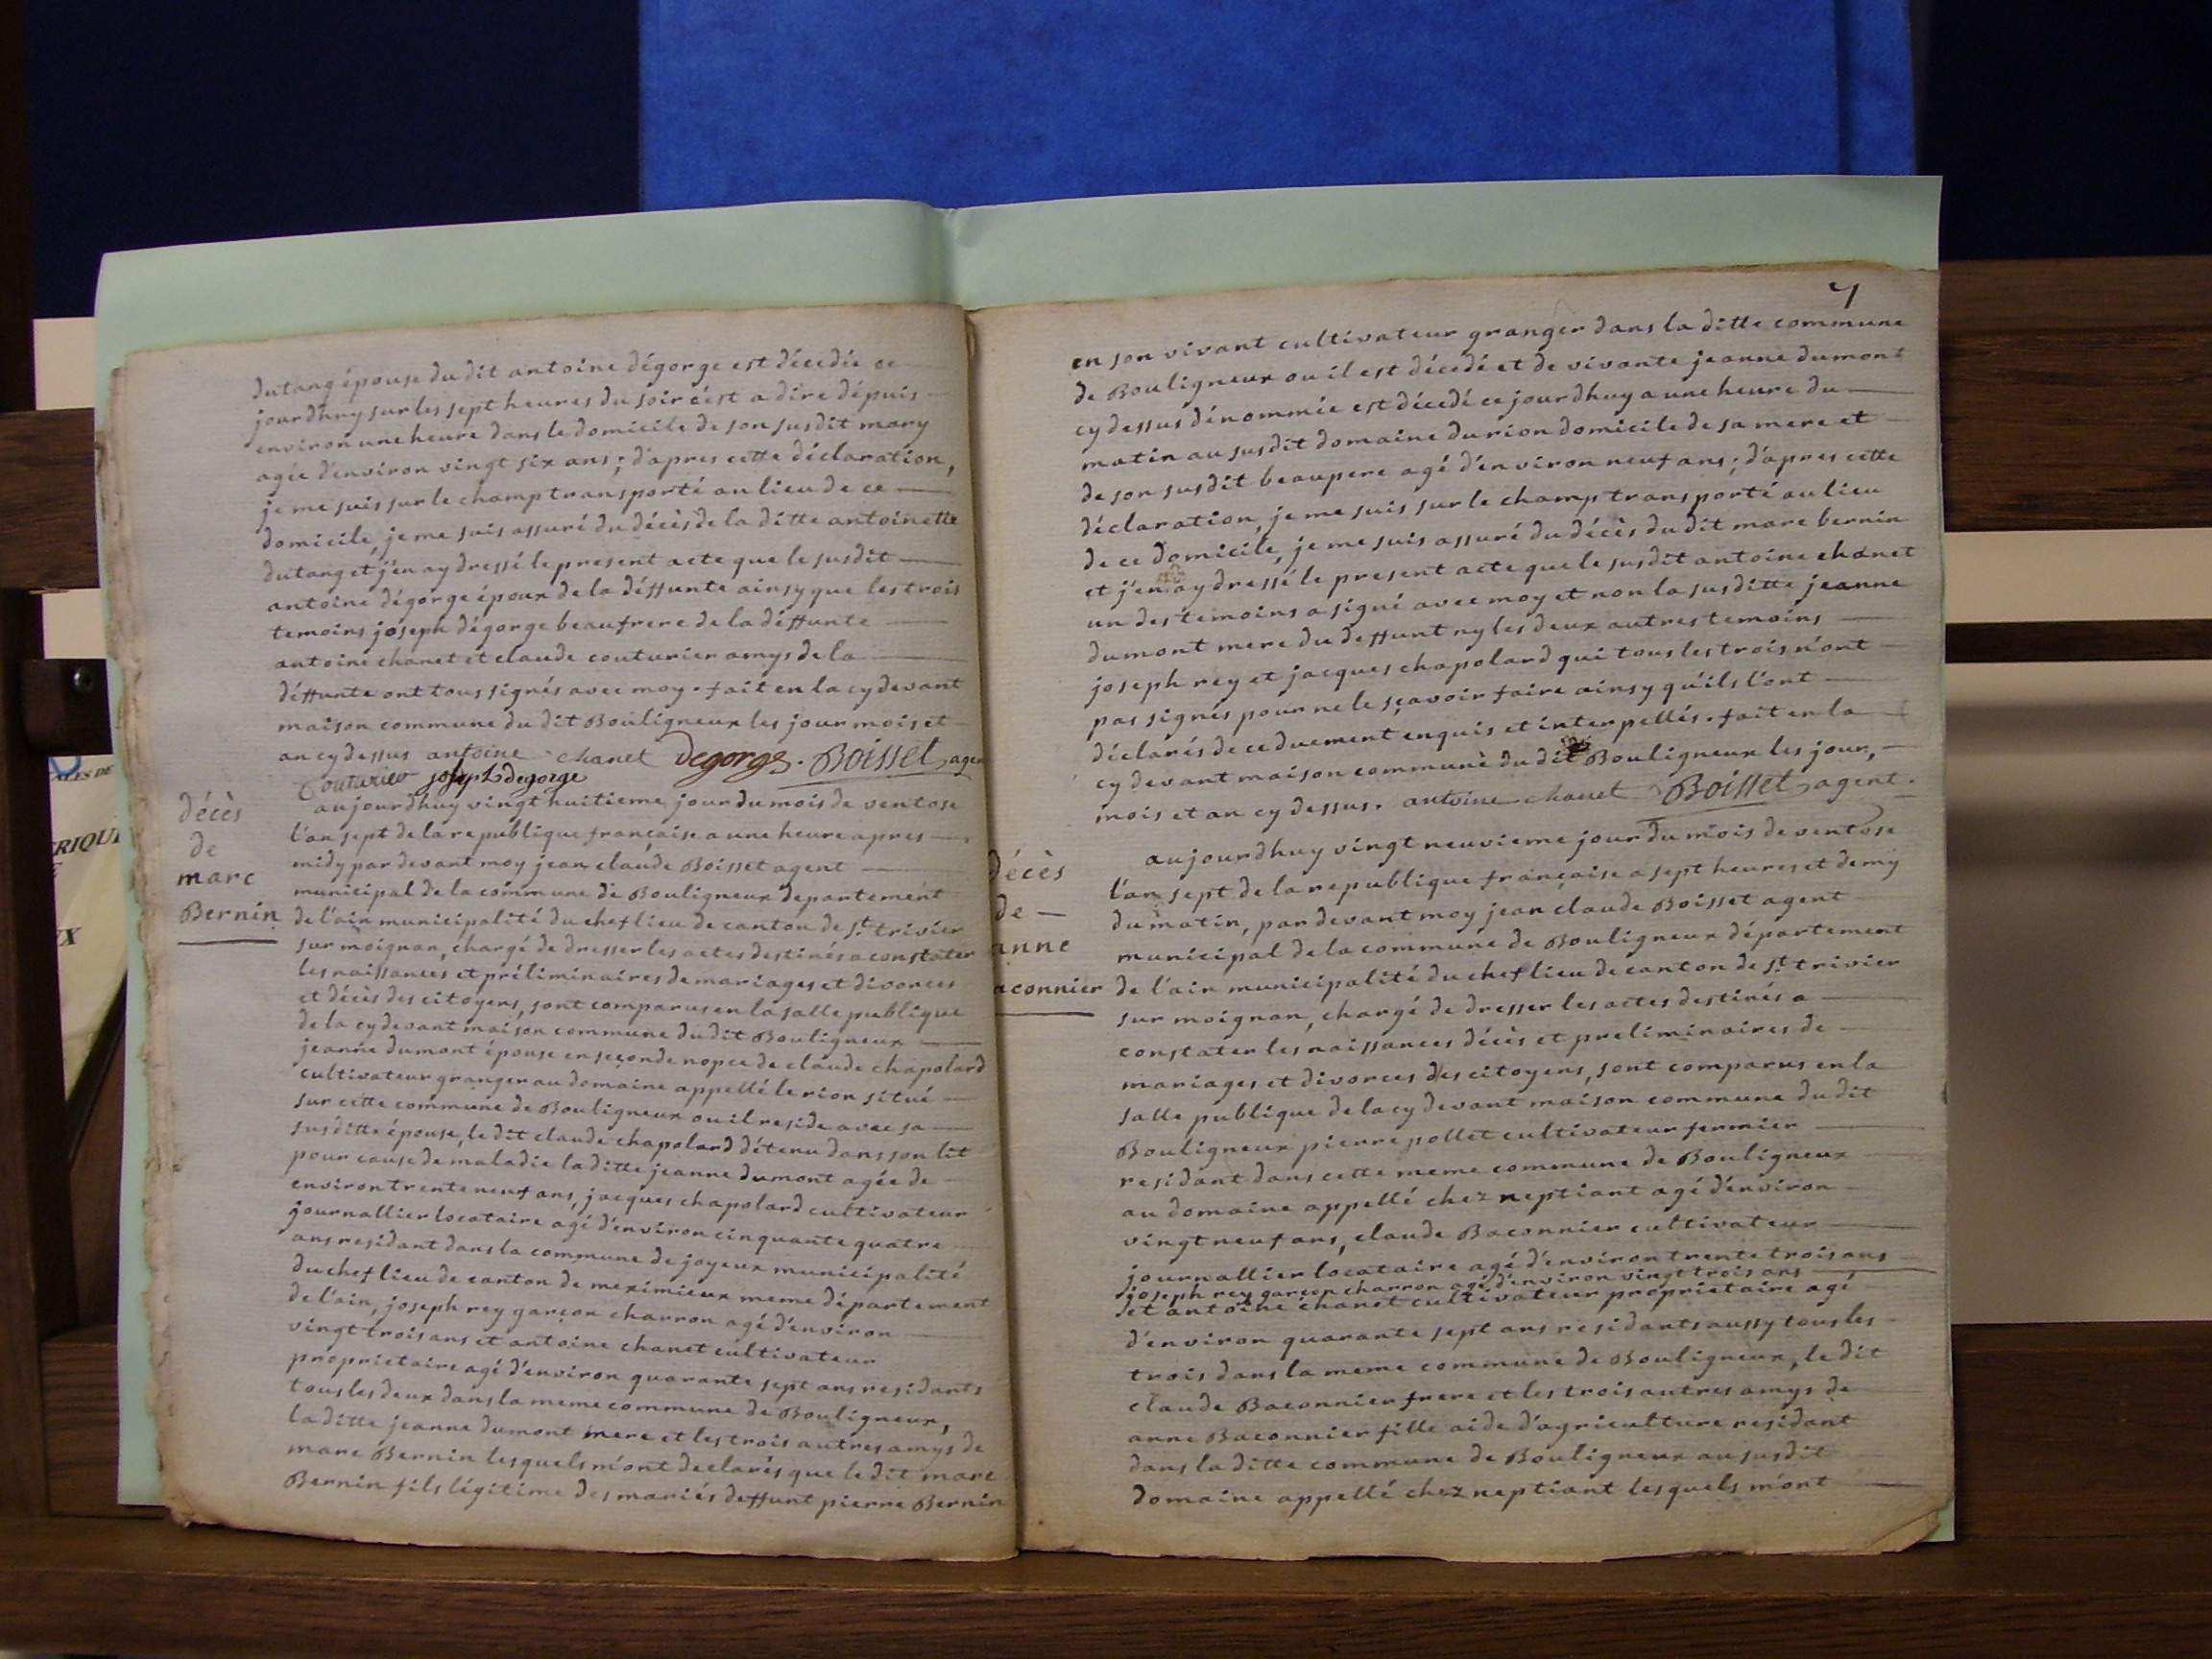 dutang épouse du dit antoine dégorge est décedée ce
jourdhuy sur les sept heures du soir c'est a dire dépuis
environ une heure dans le domicile de son susdit mary
agée d'environ vingt six ans; d'apres cette déclaration,
je me suis sur le champ transporté au lieu de ce
domicile, je me suis assuré du décès de la ditte antoinette
dutang et j'en ay dressé le present acte que le susdit
antoine dégorge époux de la déffunte ainsy que les trois
temoins joseph dégorge beaufrere de la déffunte
antoine chanet et claude couturier amys de la
déffunte ont tous signés avec moy. fait en la cy devant
maison commune du dit Bouligneux les jour mois et
an cy dessus antoine chanet Degorge. Boisset, agen
Couturier joseph degorge
décès
de
marc
Bernin
aujourdhuy vingt huitieme jour du mois de ventose
l'an sept de la republique française a une heure apres
midy par devant moy jean claude Boisset agent
municipal de la commune de Bouligneux departement
de l'ain municipalité du chef lieu de canton de st. trivier
sur moignan, chargé de dresser les actes destinés a constater
les naissances et préliminaires de mariages et divorces
et décès des citoyens, sont comparus en la salle publique
de la cy devant maison commune du dit Bouligneux
jeanne dumont épouse en seconde nopce de claude chapolard
cultivateur granger au domaine appellé le rion situé
sur cette commune de Bouligneux ou il reside avec sa
susditte épouse, le dit claude chapolard détenu dans son lit
pour cause de maladie la ditte jeanne dumont agée de
environ trente neuf ans, jacques chapolard cultivateur
journallier locataire agé d'environ cinquante quatre
ans residant dans la commune de joyeux municipalité
du chef lieu de canton de meximieux meme département
de l'ain, joseph rey garçon charron agé d'environ
vingt trois ans et antoine chanet cultivateur
proprietaire agé d'environ quarante sept ans residants
tous les deux dans la meme commune de Bouligneux,
la ditte jeanne dumont mere et les trois autres amys de
marc Bernin lesquels m'ont declarés que le dit marc
Bernin fils légitime des mariés deffunt pierre Bernin
7
en son vivant cultivateur granger dans la ditte commune
de Bouligneux ou il est décedé et de vivante jeanne dumont
cy dessus dénommée est décedé ce jourdhuy a une heure du
matin au susdit domaine du rion domicile de sa mere et
de son susdit beaupere agé d'environ neuf ans; d'apres cette
déclaration, je me suis sur le champ transporté au lieu
de ce domicile, je me suis assuré du décès du dit marc bernin
et j'en ay dressé le present acte que le susdit antoine chanet
un des temoins a signé avec moy et non la susditte jeanne
dumont mere du deffunt ny les deux autres temoins
joseph rey et jacques chapolard qui tous les trois n'ont
pas signés pour ne le sçavoir faire ainsy qu'ils l'ont
déclarés de ce duement enquis et interpellés. fait en la
cy devant maison commune du dit Bouligneux les jour,
mois et an cy dessus. antoine chanet Boisset, agent.
décès
de
anne
aconnier
aujourdhuy vingt neuvieme jour du mois de ventose
l'an sept de la republique française a sept heures et demy
du matin, par devant moy jean claude Boisset agent
municipal de la commune de Bouligneux département
de l'ain municipalité du chef lieu de canton de st. trivier
sur moignan, chargé de dresser les actes destinés a
constater les naissances décès et preliminaires de
mariages et divorces des citoyens, sont comparus en la
salle publique de la cy devant maison commune du dit
Bouligneux pierre pollet cultivateur fermier
residant dans cette meme commune de Bouligneux
au domaine appellé chez neptiant agé d'environ
vingt neuf ans, claude Baconnier cultivateur
journallier locataire agé d'environ trente trois ans
joseph rey garçon charron agé d'environ vingt trois ans
et antoine chanet cultivateur proprietaire agé
d'environ quarante sept ans residants aussy tous les
trois dans la meme commune de Bouligneux, le dit
claude Baconnier frere et les trois autres amys de
anne Baconnier fille aide d'agriculture residant
dans la ditte commune de Bouligneux au susdit
domaine appellé chez neptiant lesquels m'ont